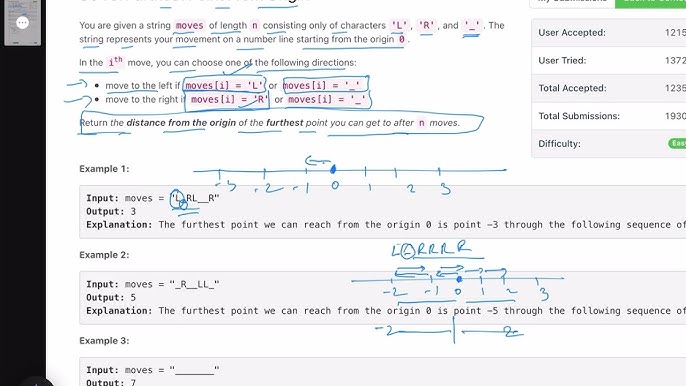 You are given a string moves of length n consisting only of characters 'L', 'R', and '_'. The
string represents your movement on a number line starting from the origin 0.
In the ith move, you can choose one of the following directions:
• move to the left if moves[i] = 'L' or moves[i] = '_'
• move to the right if moves[i] = 'R' or moves[i] = '_'
Return the distance from the origin of the furthest point you can get to after n moves.
User Accepted: 1215
User Tried: 1372
Total Accepted: 1235
Total Submissions: 1930
Difficulty: Eas
Example 1:
-3 -2 -1 0 1 2 3
Input: moves = "L_RL__R"
Output: 3
Explanation: The furthest point we can reach from the origin 0 is point -3 through the following sequence of
Example 2:
L_RRRR
Input: moves = "_R__LL_"
-2 -1 0 1 2 3
Output: 5
Explanation: The furthest point we can reach from the origin 0 is point -5 through the following sequence of
-2 2
Example 3:
Input: moves = "_______"
Output: 7